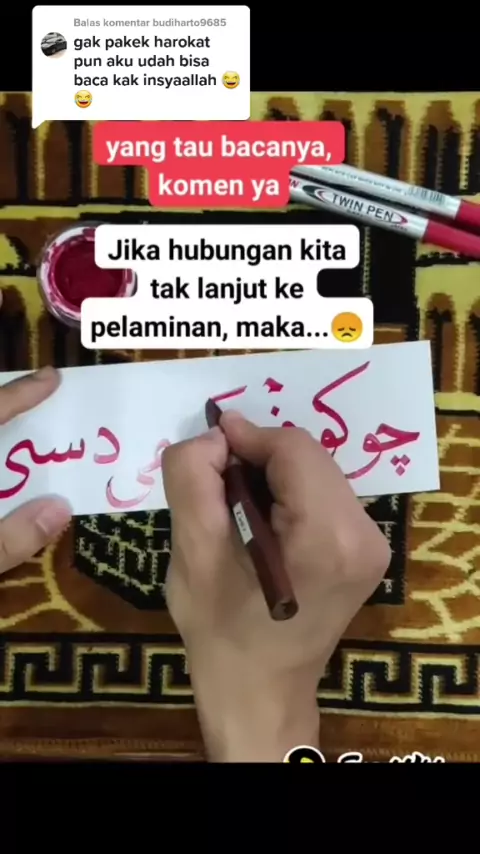 Balas komentar budiharto9685
gak pakek harokat
pun aku udah bisa
baca kak insyaallah 😂
😂
yang tau bacanya,
komen ya
TWIN PEN
Jika hubungan kita
tak lanjut ke
pelaminan, maka...😞
چوكوڤ